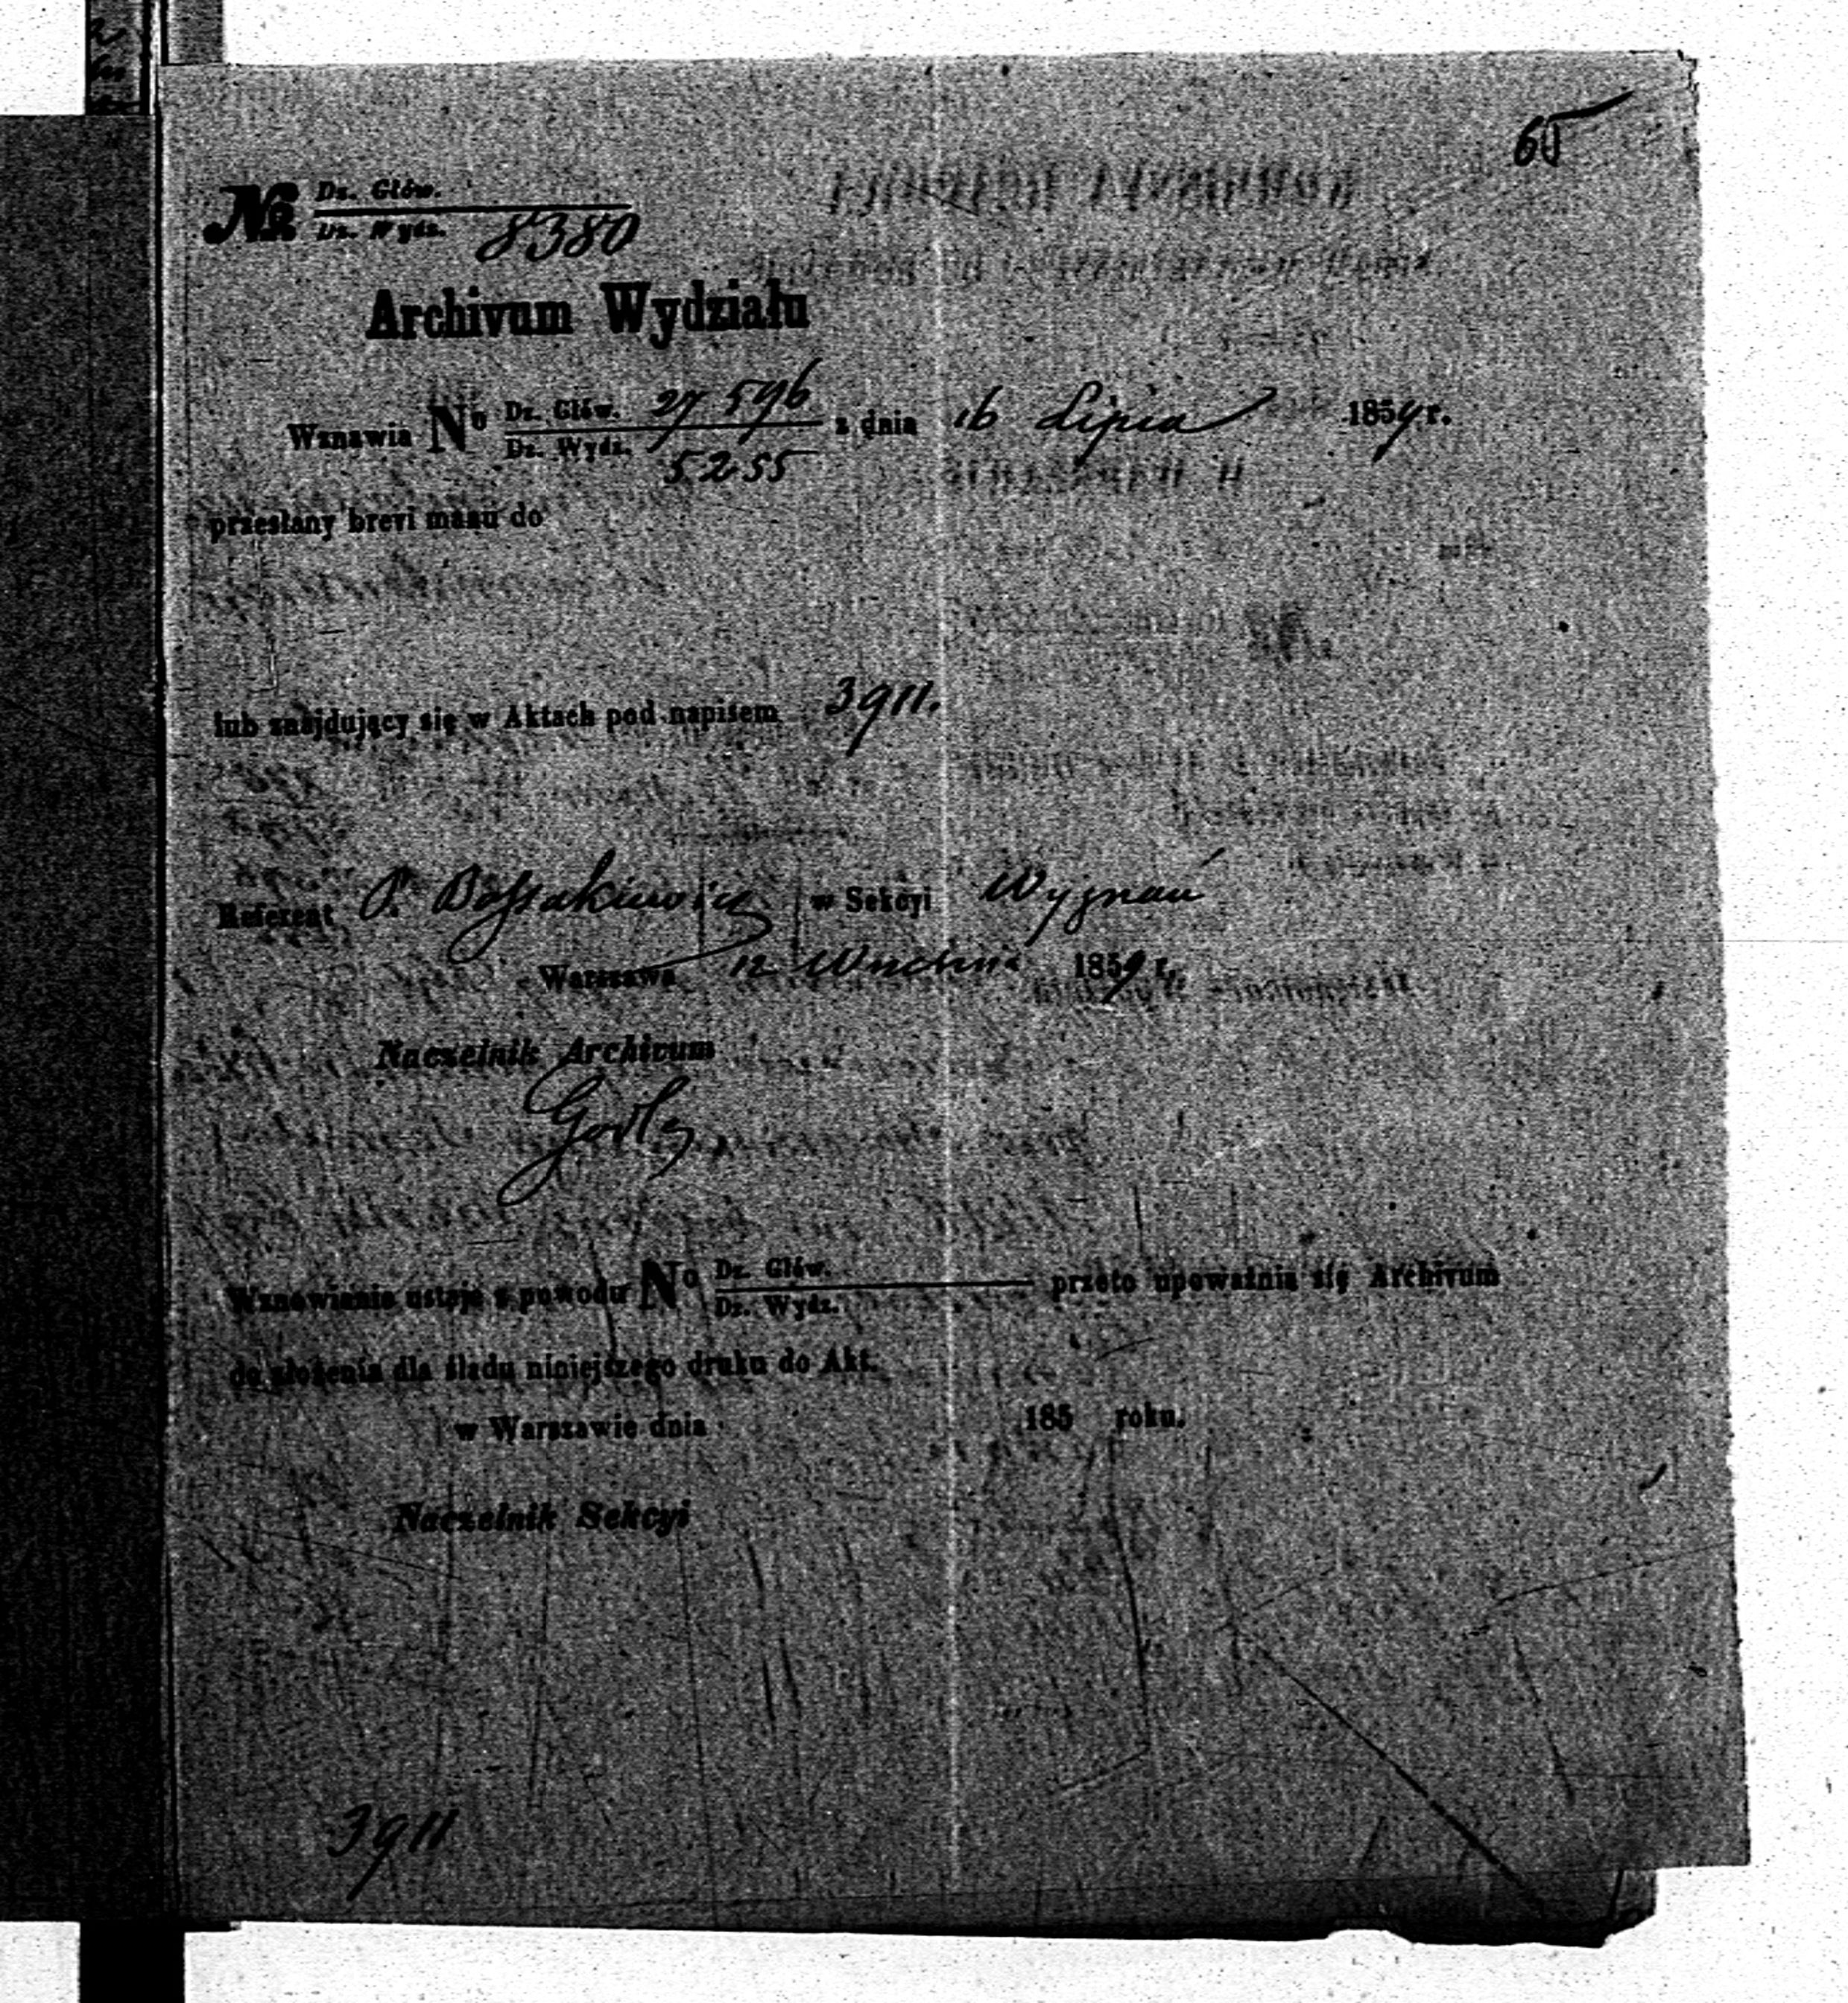 65
№ Dz. Głów.
Dz. Wydz. 8380
Archivum Wydziału
Wznawia No Dz. Głów. 27596 z dnia 16 Lipca 1859 r.
Dz. Wydz. 5255
przesłany brevi manu do
lub znajdujący się w Aktach pod napisem 3911.
Referent P. w Sekcyi Wyznań
Warszawa 12 1859 r.
Naczelnik Archivum
Wznowienie ustaje z powodu No Dz. Głów. przeto upoważnia się Archivum
Dz. Wydz.
do złożenia dla śladu niniejszego druku do Akt.
w Warszawie dnia 185 roku.
Naczelnik Sekcyi
3911